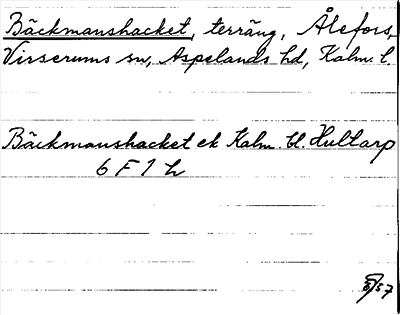 Bäckmanshacket, terräng, Ålefors,
Virserums sn, Aspelands hd, Kalm. l.
Bäckmanshacket ek Kalm. bl. Hultarp
6 F 1 h